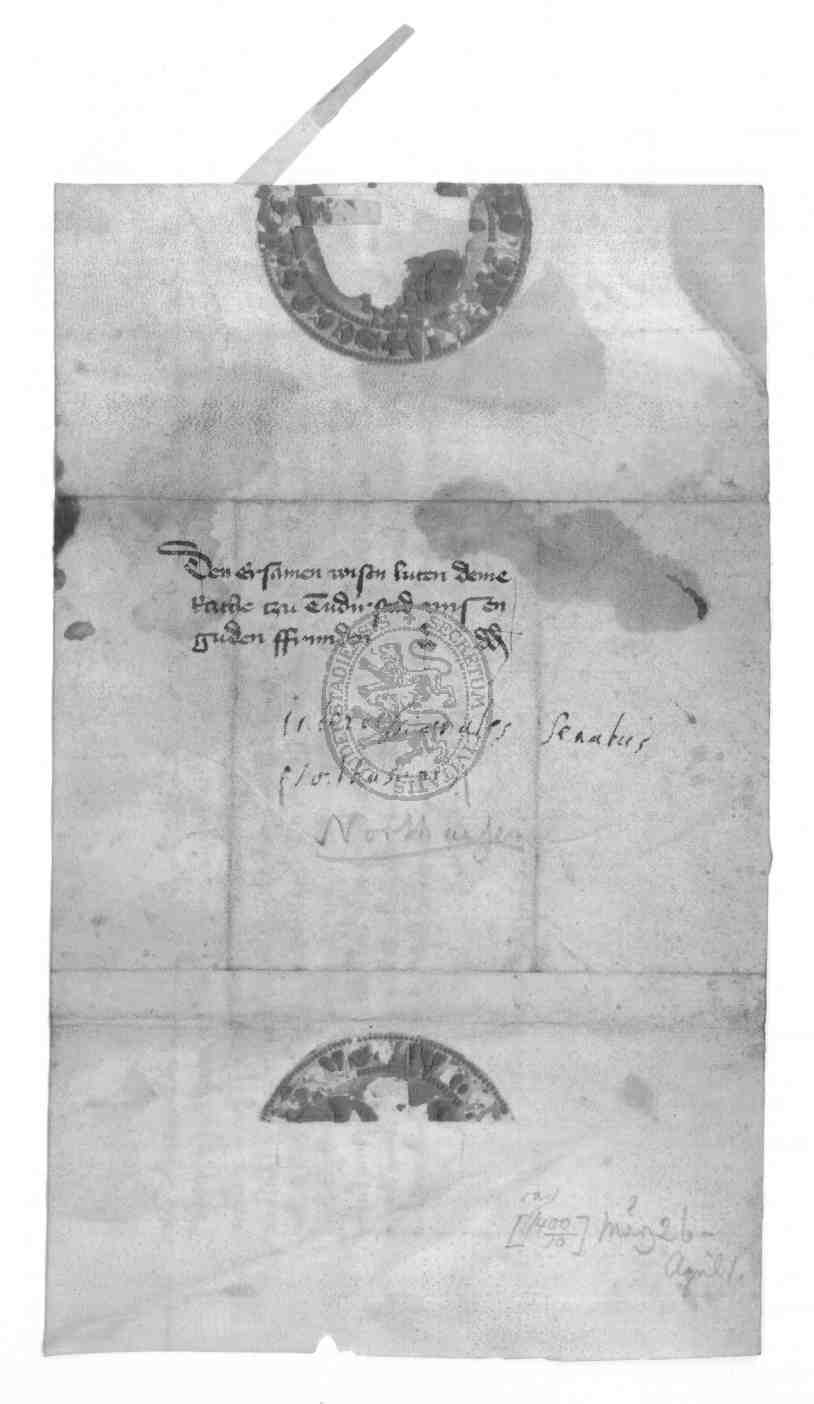 Den Ersamen wisen luten deme
Rathe tzu Dudirstad unsen
guden ffrunden
SECRETUM CIVITATIS
Senatus
Northausen
[1400/10] März 26 -
April 1.